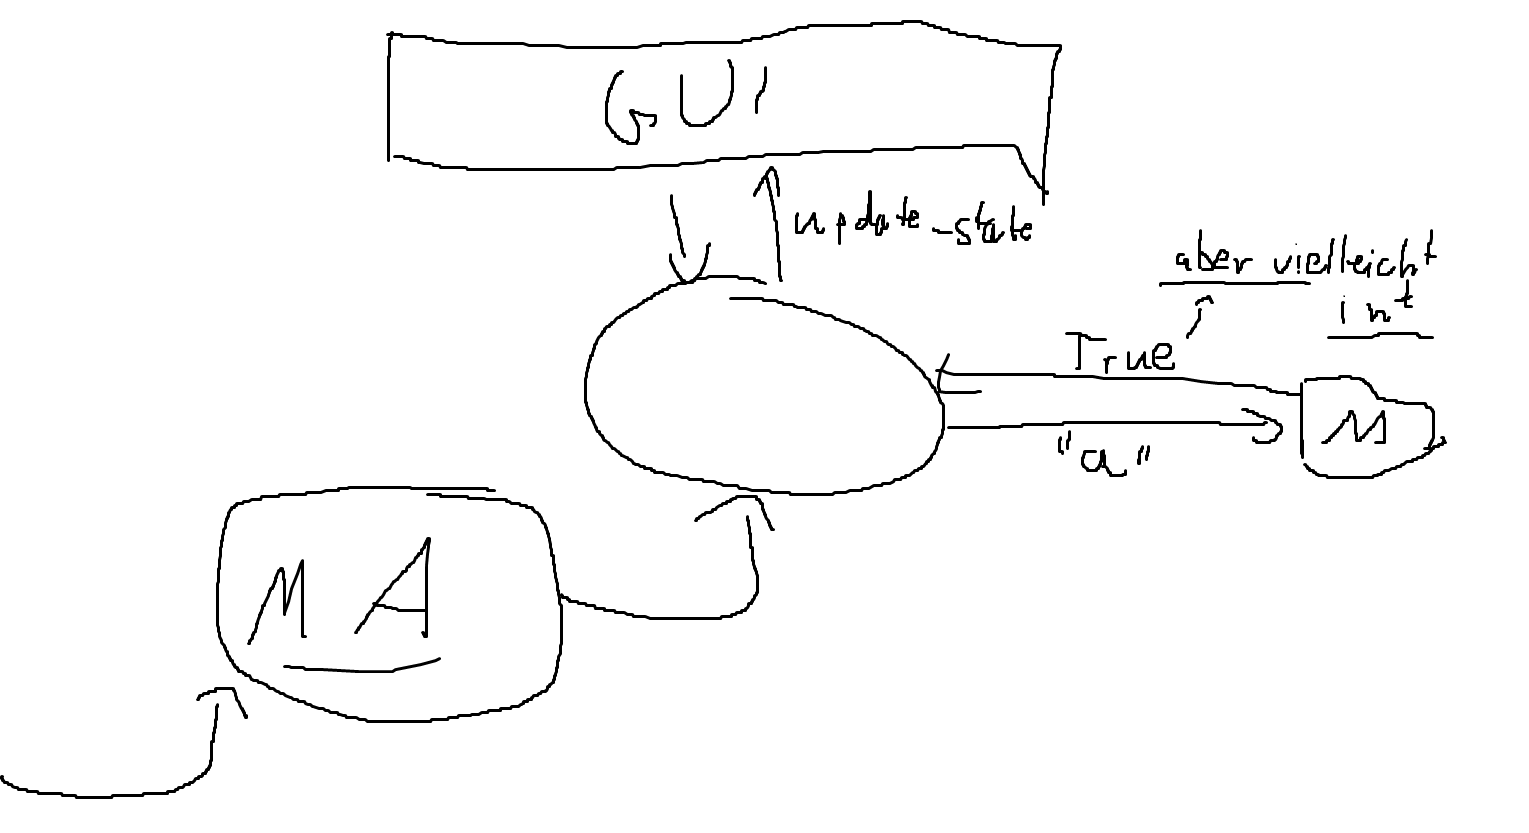 GUI
update_state
aber vielleicht
int
True
"a"
M
MA